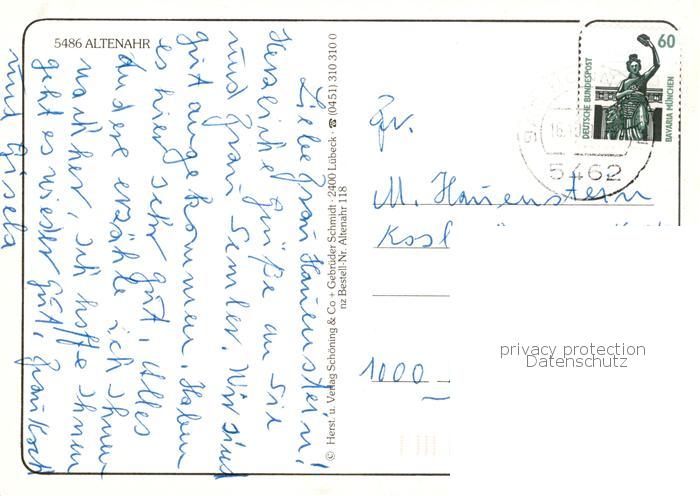 5486 ALTENAHR
Liebe Frau Hauenstein!
Herzliche Grüße an Sie
und Frau Semler. Wir sind
gut angekommen. Haben
es hier sehr gut, Alles
Andere erzähle ich Ihnen
nachher, ich hoffe Ihnen
geht es wieder gut, Frau Koch
und Gisela
© Herst. u. Verlag Schöning & Co + Gebrüder Schmidt · 2400 Lübeck · ☎ (0451) 310 310 0
nz Bestell-Nr. Altenahr 118
60
DEUTSCHE BUNDESPOST
BAVARIA MÜNCHEN
5462
Fr.
M. Hauenstein
1000
privacy protection
Datenschutz